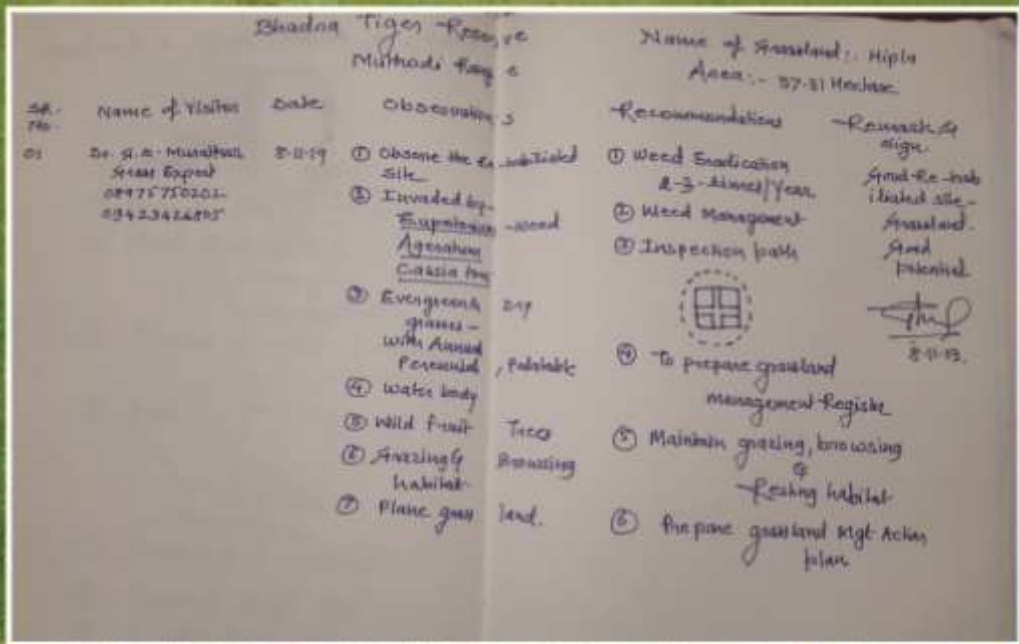 Bhadra Tiger Reserve
Muthodi Range
Name of Grassland:. Hipla
Area:- 57-31 Hectare
SR. No.
Name of Visitor
Date
Observations
Recommendations
Remark & sign.
01
Dr. G.R.
Grass Expert
08975750202
09423426805
8-11-19
① Observe the
site
② Invaded by-
Eupatorium -weed
Ageratum
Cassia
③ Evergreen &
grasses -
with Annual
Perennial, Palatable
④ Water body
⑤ Wild fruit Trees
⑥ Grazing & Browsing
habitat
⑦ Plane grass land.
① Weed Eradication
2-3-times/Year
② Weed Management
③ Inspection path
④ To prepare grassland
management Register
⑤ Maintain grazing, browsing
&
Resting habitat
⑥ Prepare grassland Mgt Action
plan
Good-Re-hab
ilitated site-
Grassland.
Good
potential